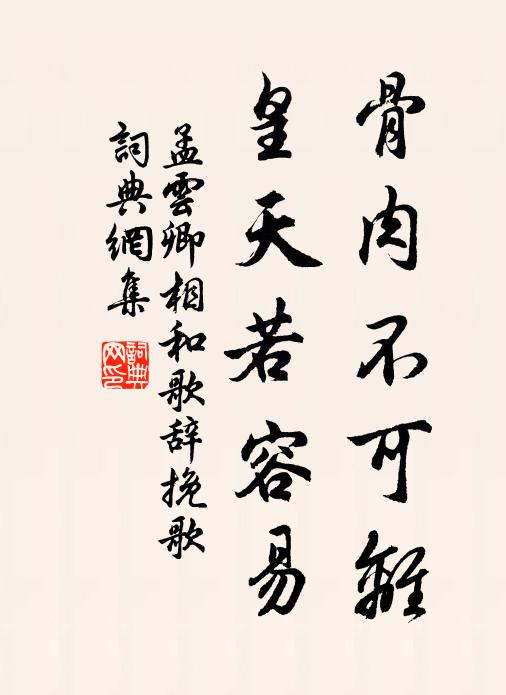 骨肉不可離
皇天若容易
孟雲卿相和歌辞挽歌
詞典網集
詞典
网印